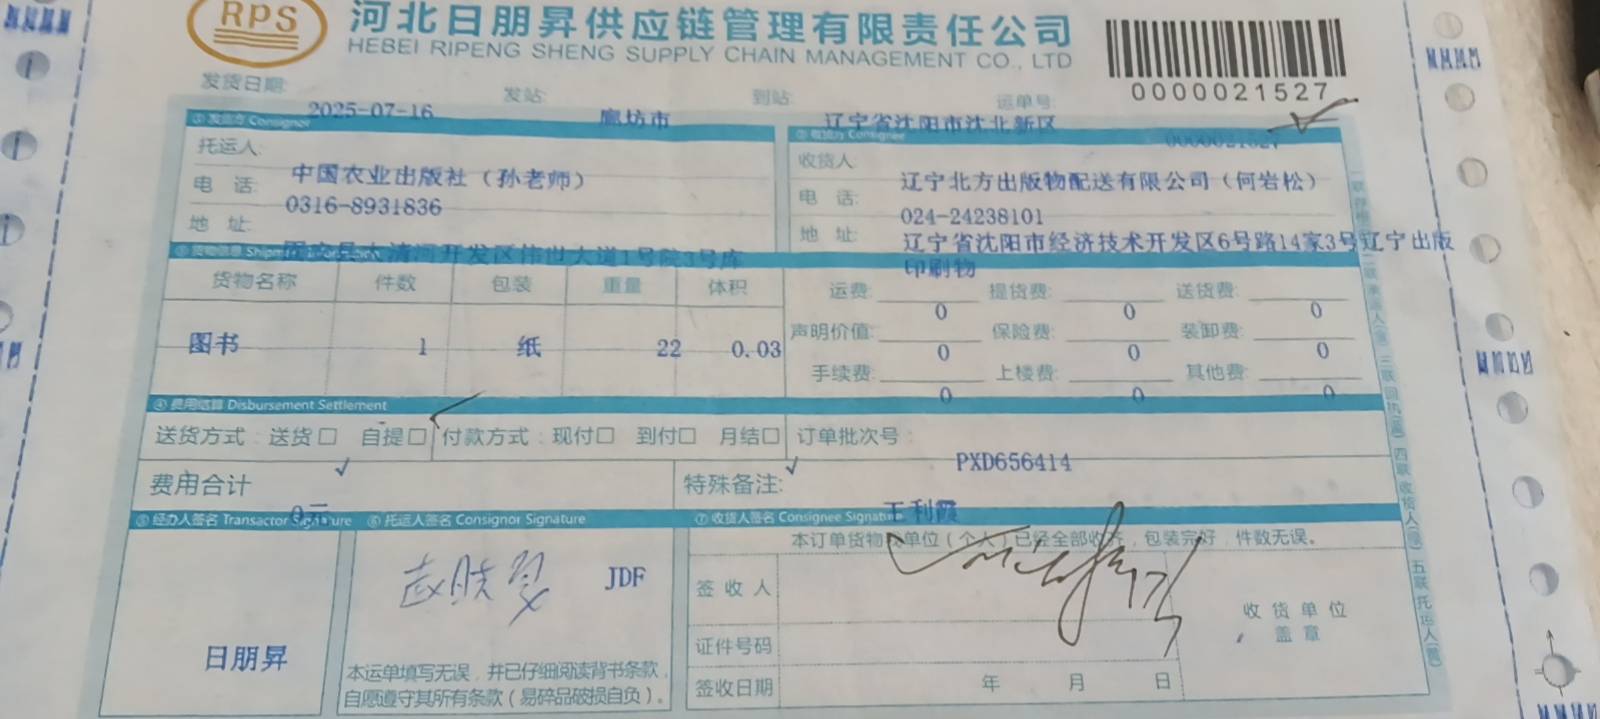 RPS
河北日朋昇供应链管理有限责任公司
HEBEI RIPENG SHENG SUPPLY CHAIN MANAGEMENT CO., LTD
0000021527
发货日期: 2025-07-16 发站: 廊坊市 到站: 辽宁省沈阳市沈北新区 运单号: 0000021527
① 发货方 Consignor
② 收货方 Consignee
托运人: 中国农业出版社（孙老师）
电 话: 0316-8931836
地 址: 大清河开发区伟世大道1号院3号库
收货人: 辽宁北方出版物配送有限公司（何岩松）
电 话: 024-24238101
地 址: 辽宁省沈阳市经济技术开发区6号路14家3号辽宁出版
印刷物
货物名称 件数 包装 重量 体积
图书 1 纸 22 0.03
运费: 0 提货费: 0 送货费: 0
声明价值: 0 保险费: 0 装卸费: 0
手续费: 0 上楼费: 0 其他费: 0
④ 费用结算 Disbursement Settlement
送货方式：送货□ 自提□ 付款方式：现付□ 到付□ 月结□ 订单批次号：
PXD656414
费用合计 0元
特殊备注: 王利霞
⑤ 经办人签名 Transactor Signature ⑥ 托运人签名 Consignor Signature ⑦ 收货人签名 Consignee Signature
本订单货物收单位（个人）已经全部收齐，包装完好，件数无误。
JDF
日朋昇
本运单填写无误，并已仔细阅读背书条款，
自愿遵守其所有条款（易碎品破损自负）。
签 收 人
证件号码
签收日期 年 月 日
收 货 单 位
盖 章